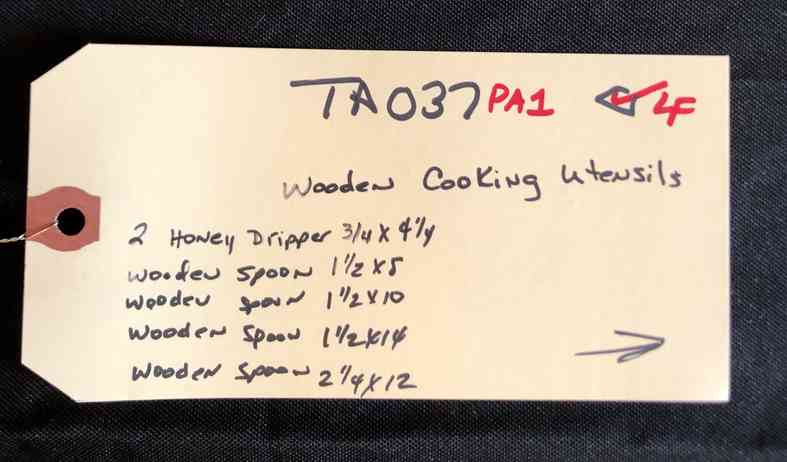 TA037 PA1 LF
Wooden Cooking Utensils
2 Honey Dripper 3/4 x 4 1/4
Wooden Spoon 1 1/2 x 8
Wooden Spoon 1 1/2 x 10
Wooden Spoon 1 1/2 x 14
Wooden Spoon 2 1/4 x 12